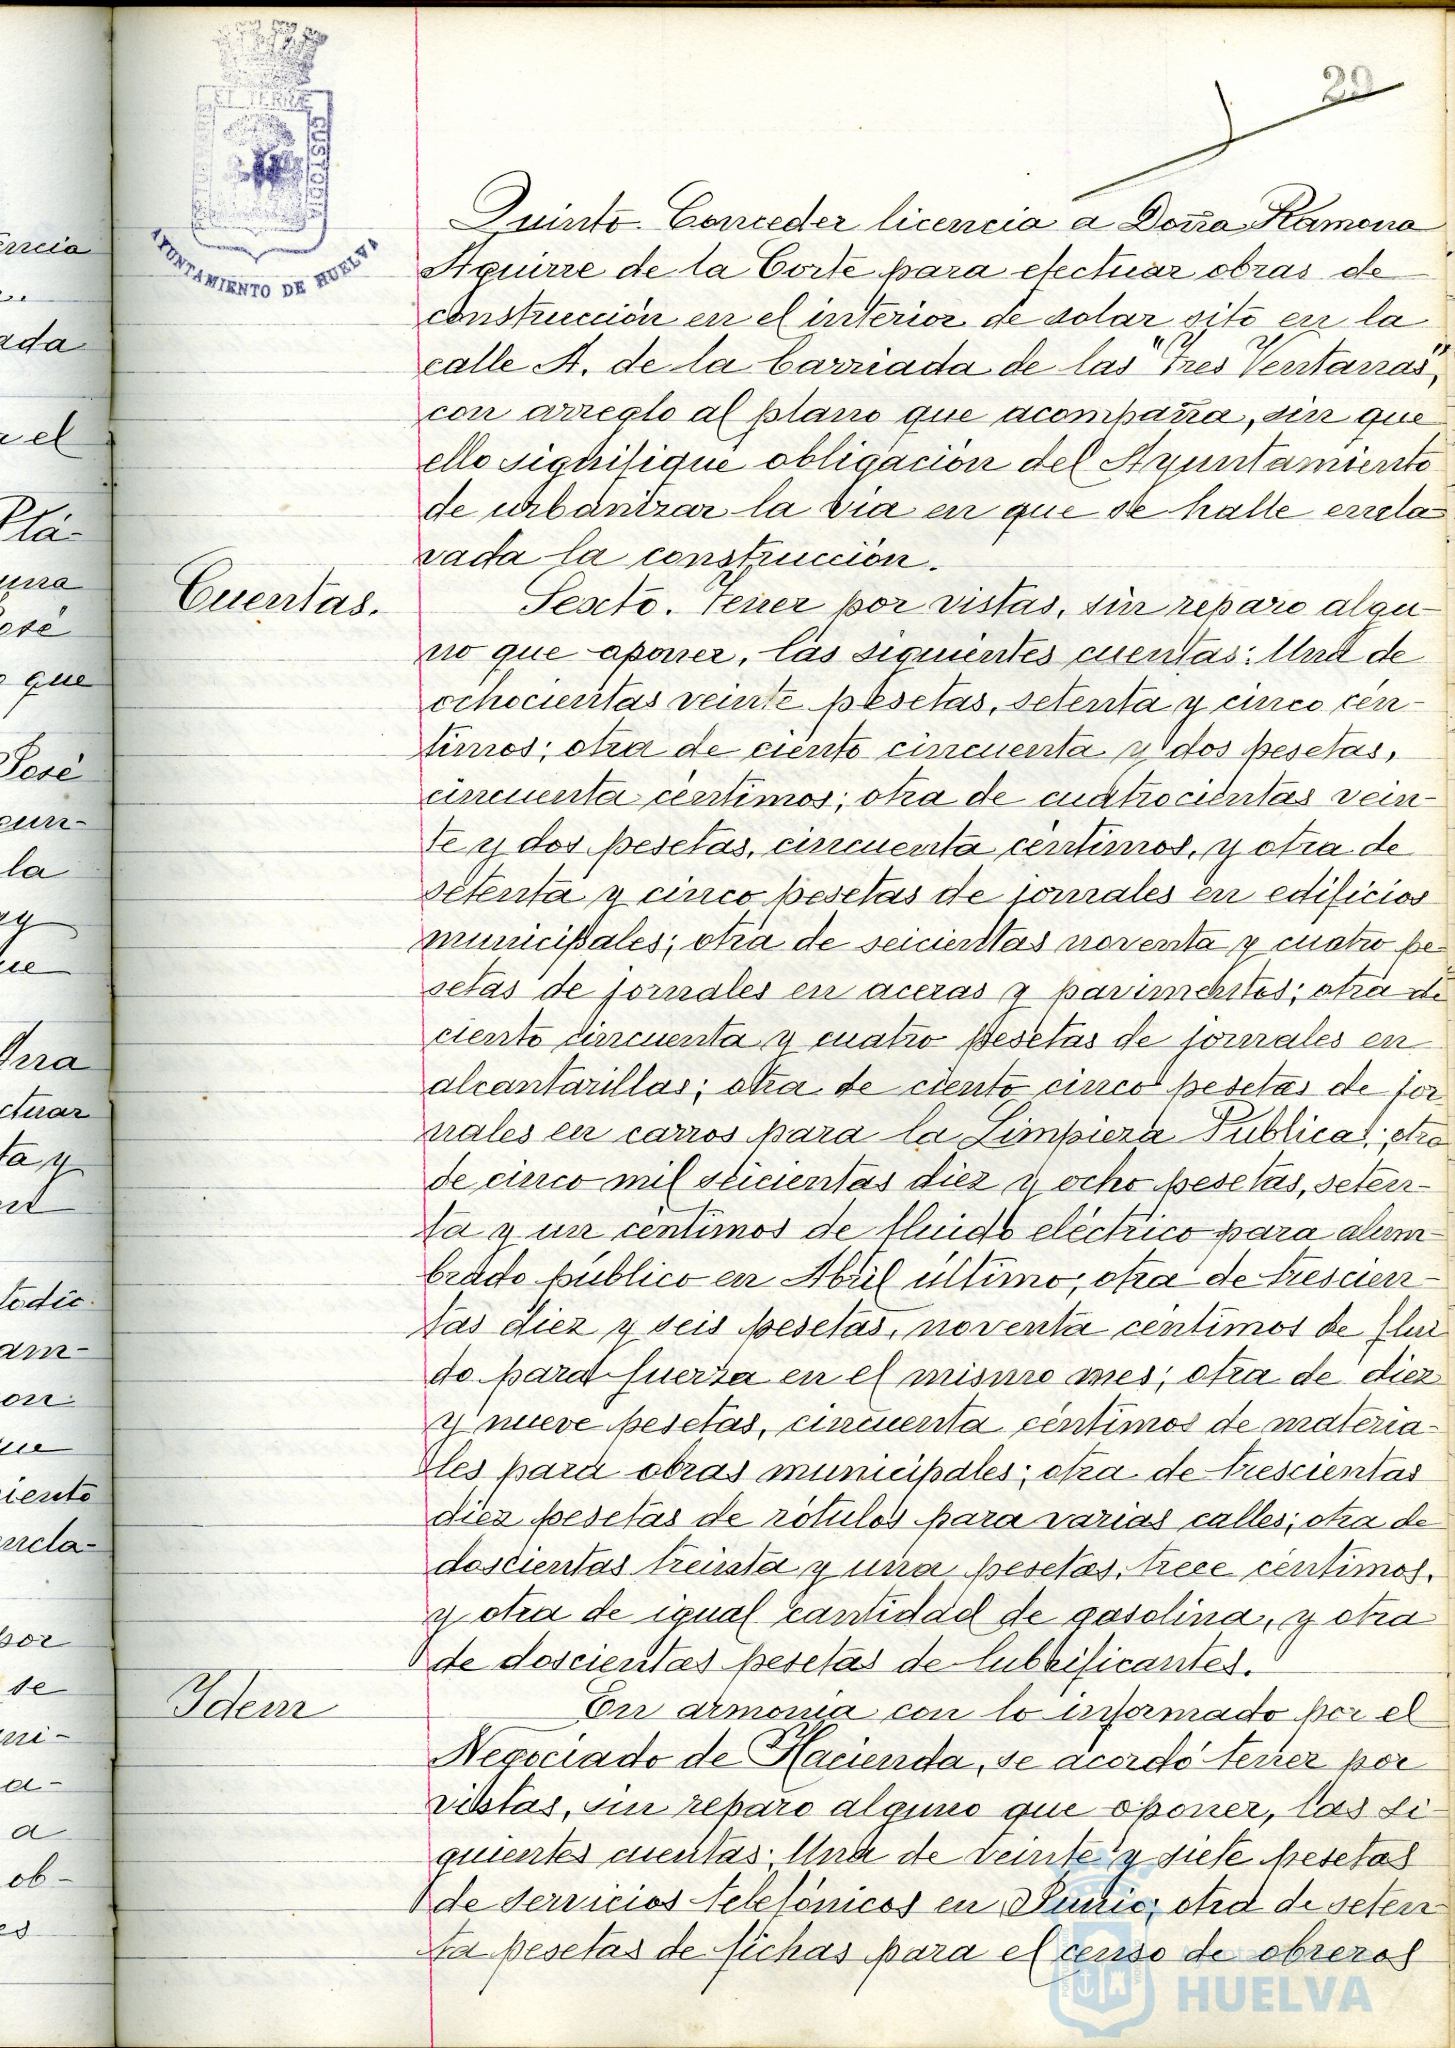 29
ET TERRÆ CUSTODIA
AYUNTAMIENTO DE HUELVA
Quinto. Conceder licencia a Doña Ramona
Aguirre de la Corte para efectuar obras de
construcción en el interior de solar sito en la
calle A. de la barriada de las "Tres Ventanas",
con arreglo al plano que acompaña, sin que
ello signifique obligación del Ayuntamiento
de urbanizar la via en que se halle encla-
vada la construcción.
Cuentas.
Sexto. Tener por vistas, sin reparo algu-
no que oponer, las siguientes cuentas: Una de
ochocientas veinte pesetas, setenta y cinco cén-
timos; otra de ciento cincuenta y dos pesetas,
cincuenta céntimos; otra de cuatrocientas vein-
te y dos pesetas, cincuenta céntimos, y otra de
setenta y cinco pesetas de jornales en edificios
municipales; otra de seicientas noventa y cuatro pe-
setas de jornales en aceras y pavimentos; otra de
ciento cincuenta y cuatro pesetas de jornales en
alcantarillas; otra de ciento cinco pesetas de jor-
nales en carros para la Limpieza Publica; otra
de cinco mil seicientas diez y ocho pesetas, seten-
ta y un céntimos de fluido eléctrico para alum-
brado público en Abril último; otra de trescien-
tas diez y seis pesetas, noventa céntimos de flui
do para fuerza en el mismo mes; otra de diez
y nueve pesetas, cincuenta céntimos de materia-
les para obras municipales; otra de trescientas
diez pesetas de rótulos para varias calles; otra de
doscientas treinta y una pesetas, trece céntimos,
y otra de igual cantidad de gasolina, y otra
de doscientas pesetas de lubrificantes.
Idem
En armonia con lo informado por el
Negociado de Hacienda, se acordó tener por
vistas, sin reparo alguno que oponer, las si-
guientes cuentas: Una de veinte y siete pesetas
de servicios telefónicos en Junio; otra de seten-
ta pesetas de fichas para el censo de obreros
HUELVA
encia
ada
el
Plá-
una
osé
que
José
cun-
la
Una
ctuar
ta y
todic
am-
on
iento
encla-
por
se
ni-
a-
a
ob-
es